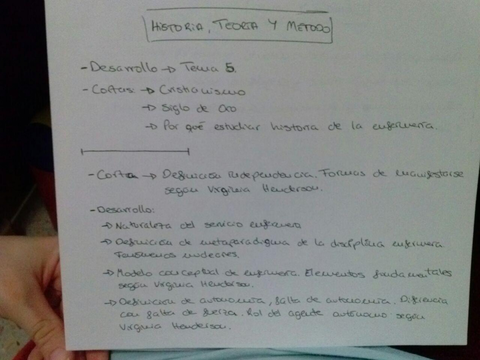 HISTORIA, TEORIA Y METODO
- Desarrollo → Tema 5.
- Cortas → Cristianismo
→ Siglo de Oro
→ Por qué estudiar historia de la enfermería.
- Cortas → Definición independencia. Formas de manifestarse
según Virginia Henderson.
- Desarrollo:
→ Naturaleza del servicio enfermero
→ Definición de metaparadigma de la disciplina enfermera
Fenómenos nucleares
→ Modelo conceptual de enfermera. Elementos fundamentales
según Virginia Henderson.
→ Definición de autonomía, falta de autonomía. Diferencia
con falta de fuerza. Rol del agente autónomo según
Virginia Henderson.